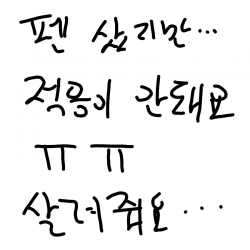 펜 샀지만...
적응이 안돼요
ㅠㅠ
살려줘요...